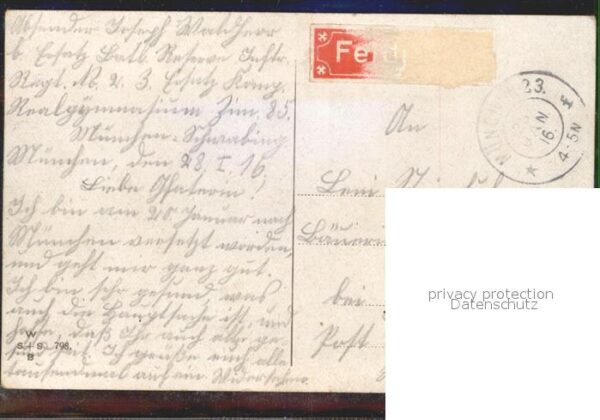 Absender Joseph Waldherr
b. Ersatz Batl. Reserve Inftr.
Regt. N. 2. 3. Ersatz Komp.
Realgymnasium Zim. 85.
München-Schwabing
München, den 28. I. 16.
Liebe
Ich bin am 20 Januar nach
München versetzt worden,
und geht mir ganz gut.
Ich bin sehr gesund, was
auch die Hauptsache ist, und
hoffe, daß Ihr auch alle ge-
sund seit. Ich grüße euch alle
tausendmal auf ein Wiedersehen.
W
S+S. 798.
B
Fel
MÜN
23.
16.
4-5N
An
bei
Post
privacy protection
Datenschutz